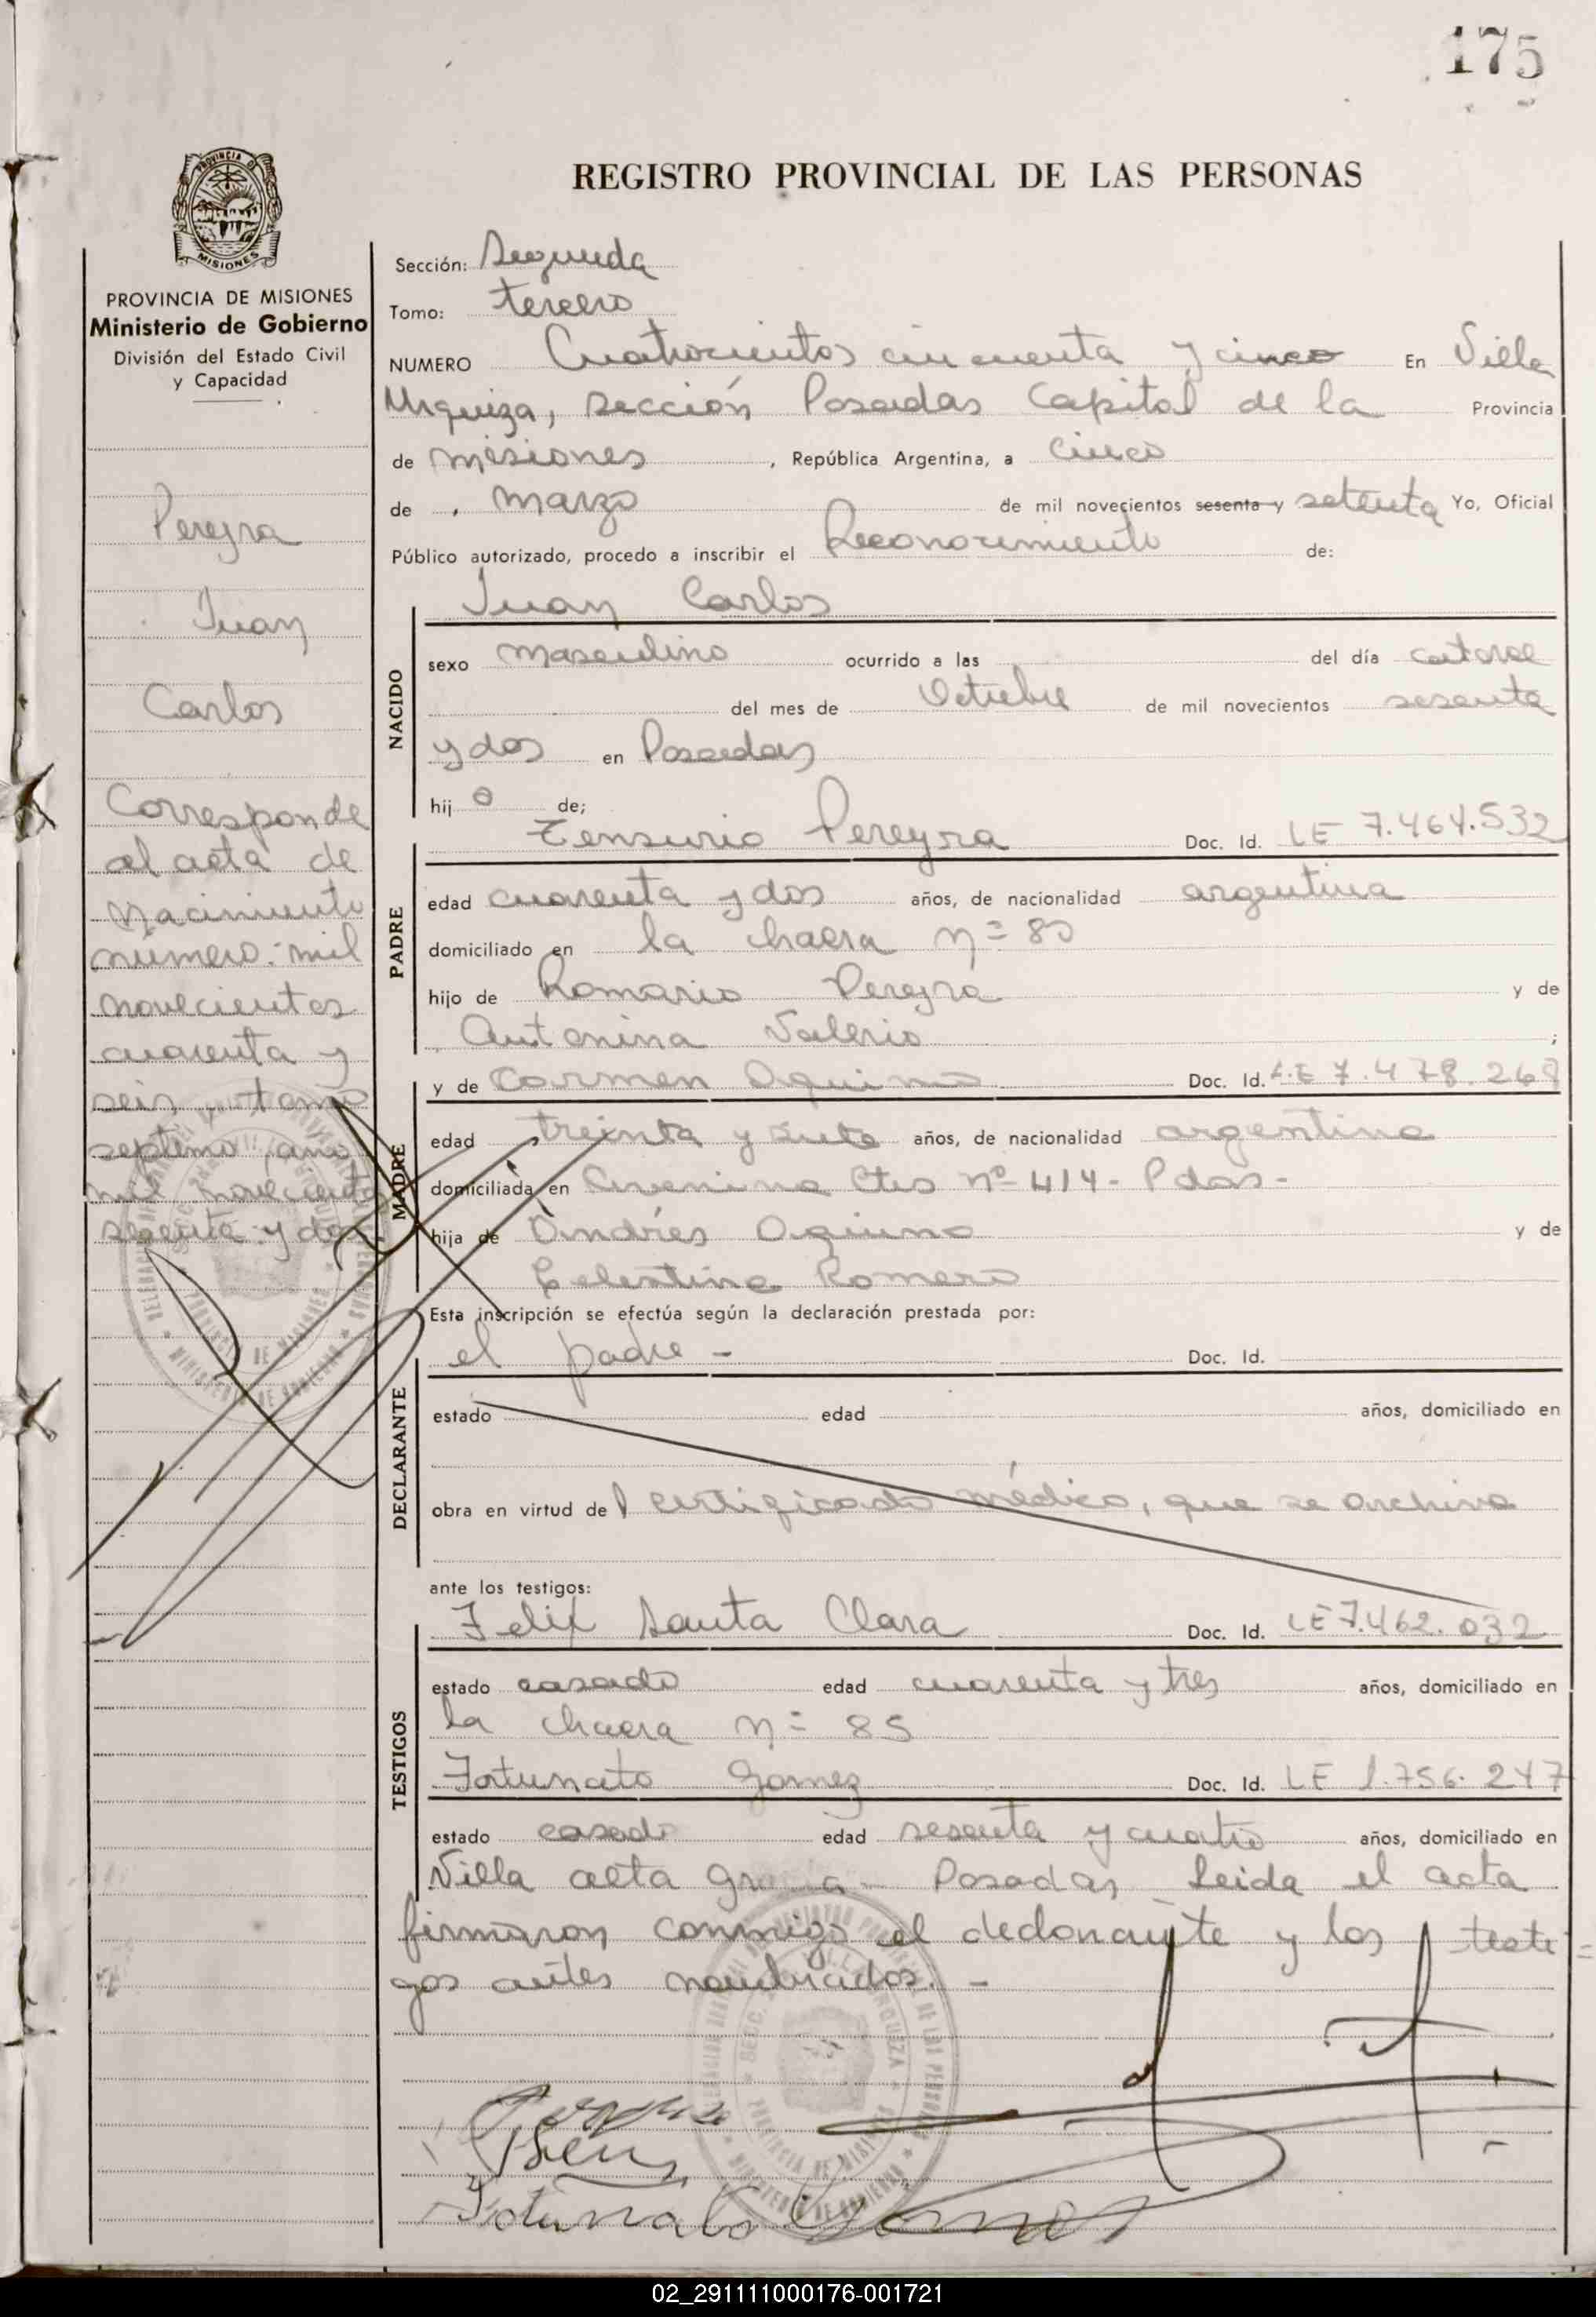 175
REGISTRO PROVINCIAL DE LAS PERSONAS
PROVINCIA DE MISIONES
Ministerio de Gobierno
División del Estado Civil
y Capacidad
Pereyra
Juan
Carlos
Corresponde
al acta de
Nacimiento
número: mil
novecientos
cuarenta y
seis, tomo
septimo, año
mil novecientos
sesenta y dos
Sección: Segunda
Tomo: tercero
NUMERO Cuatrocientos cincuenta y cinco En Villa
Urquiza, sección Posadas Capital de la Provincia
de misiones, República Argentina, a cinco
de marzo de mil novecientos sesenta y setenta Yo, Oficial
Público autorizado, procedo a inscribir el Reconocimiento de:
Juan Carlos
NACIDO
sexo masculino ocurrido a las del día catorce
del mes de Octubre de mil novecientos sesenta
y dos en Posadas
hij o de;
Pereyra Doc. Id. LE 7.464.532
PADRE
edad cuarenta y dos años, de nacionalidad argentina
domiciliado en la chacra nº 80
hijo de Romario Pereyra y de
Antonina Valerio ;
y de Carmen Aquino Doc. Id. L.E 7.478.268
MADRE
edad treinta y siete años, de nacionalidad argentina
domiciliada en Avenina Ctes nº 414- Pdas-
hija de Andrés Aquino y de
Celestina Romero
Esta inscripción se efectúa según la declaración prestada por:
el padre - Doc. Id.
DECLARANTE
estado edad años, domiciliado en
obra en virtud del certificado médico, que se archiva
ante los testigos:
Felix Santa Clara Doc. Id. LE 7.462.032
TESTIGOS
estado casado edad cuarenta y tres años, domiciliado en
la chacra nº 85
Fortunato Gomez Doc. Id. LE 1.756.247
estado casado edad sesenta y cuatro años, domiciliado en
Villa alta gracia - Posadas Leida el acta
firmaron conmigo el declarante y los testi=
gos antes nombrados. -
Fortunato Gomez
02_291111000176-001721